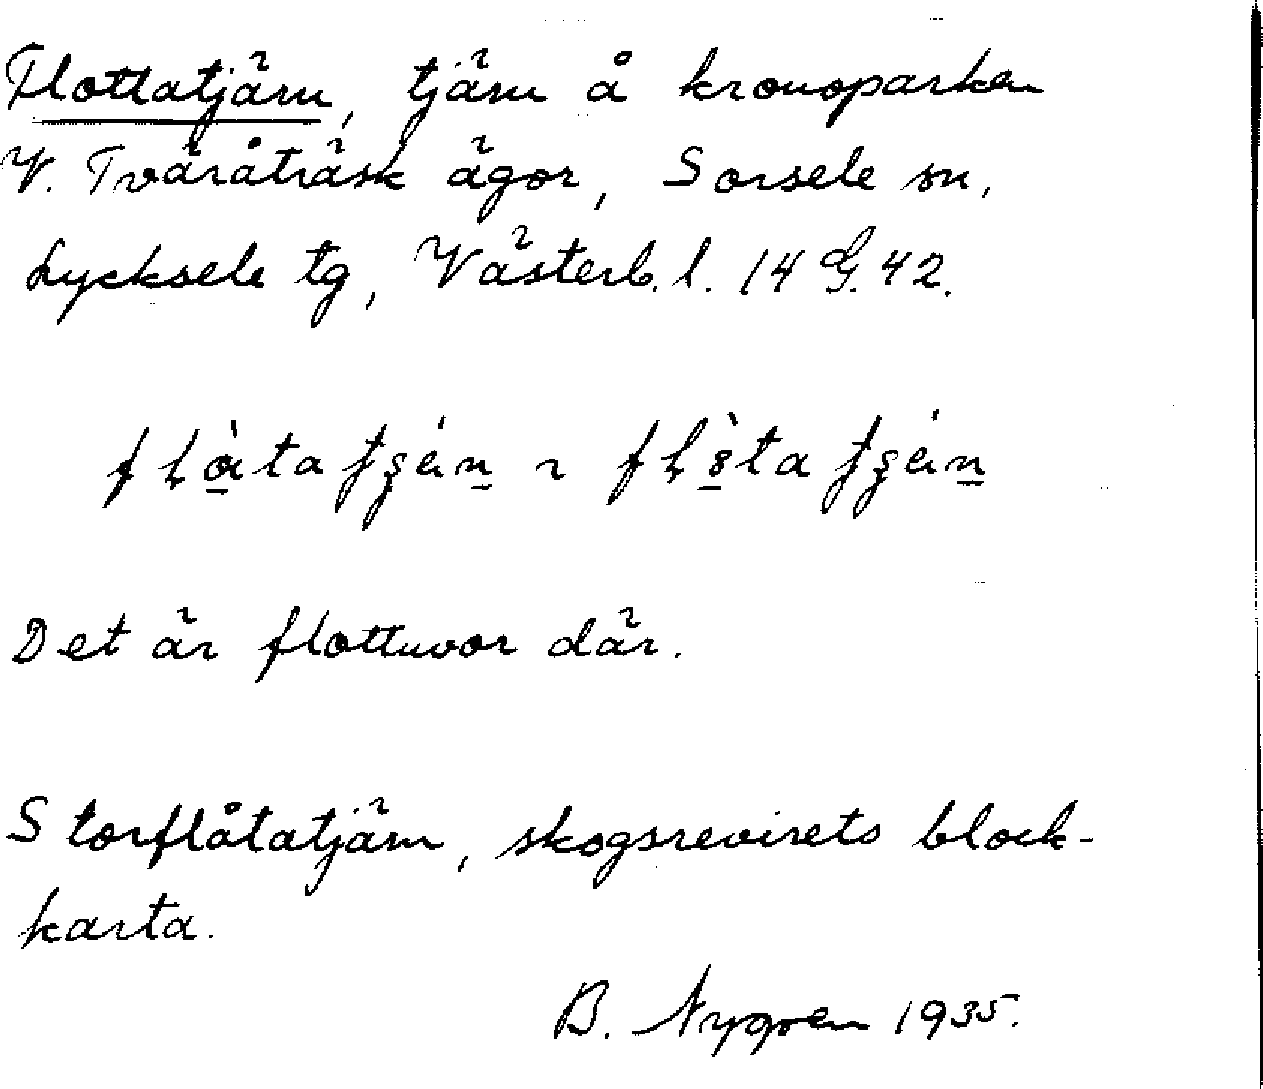 Flottatjärn, tjärn å kronoparken
V. Tväråträsk ägor, Sorsele sn,
Lycksele tg, Västerb. l. 14 G. 42.
Det är flottuvor där.
Storflåtatjärn, skogsrevirets block-
karta.
B. Nygren 1935.